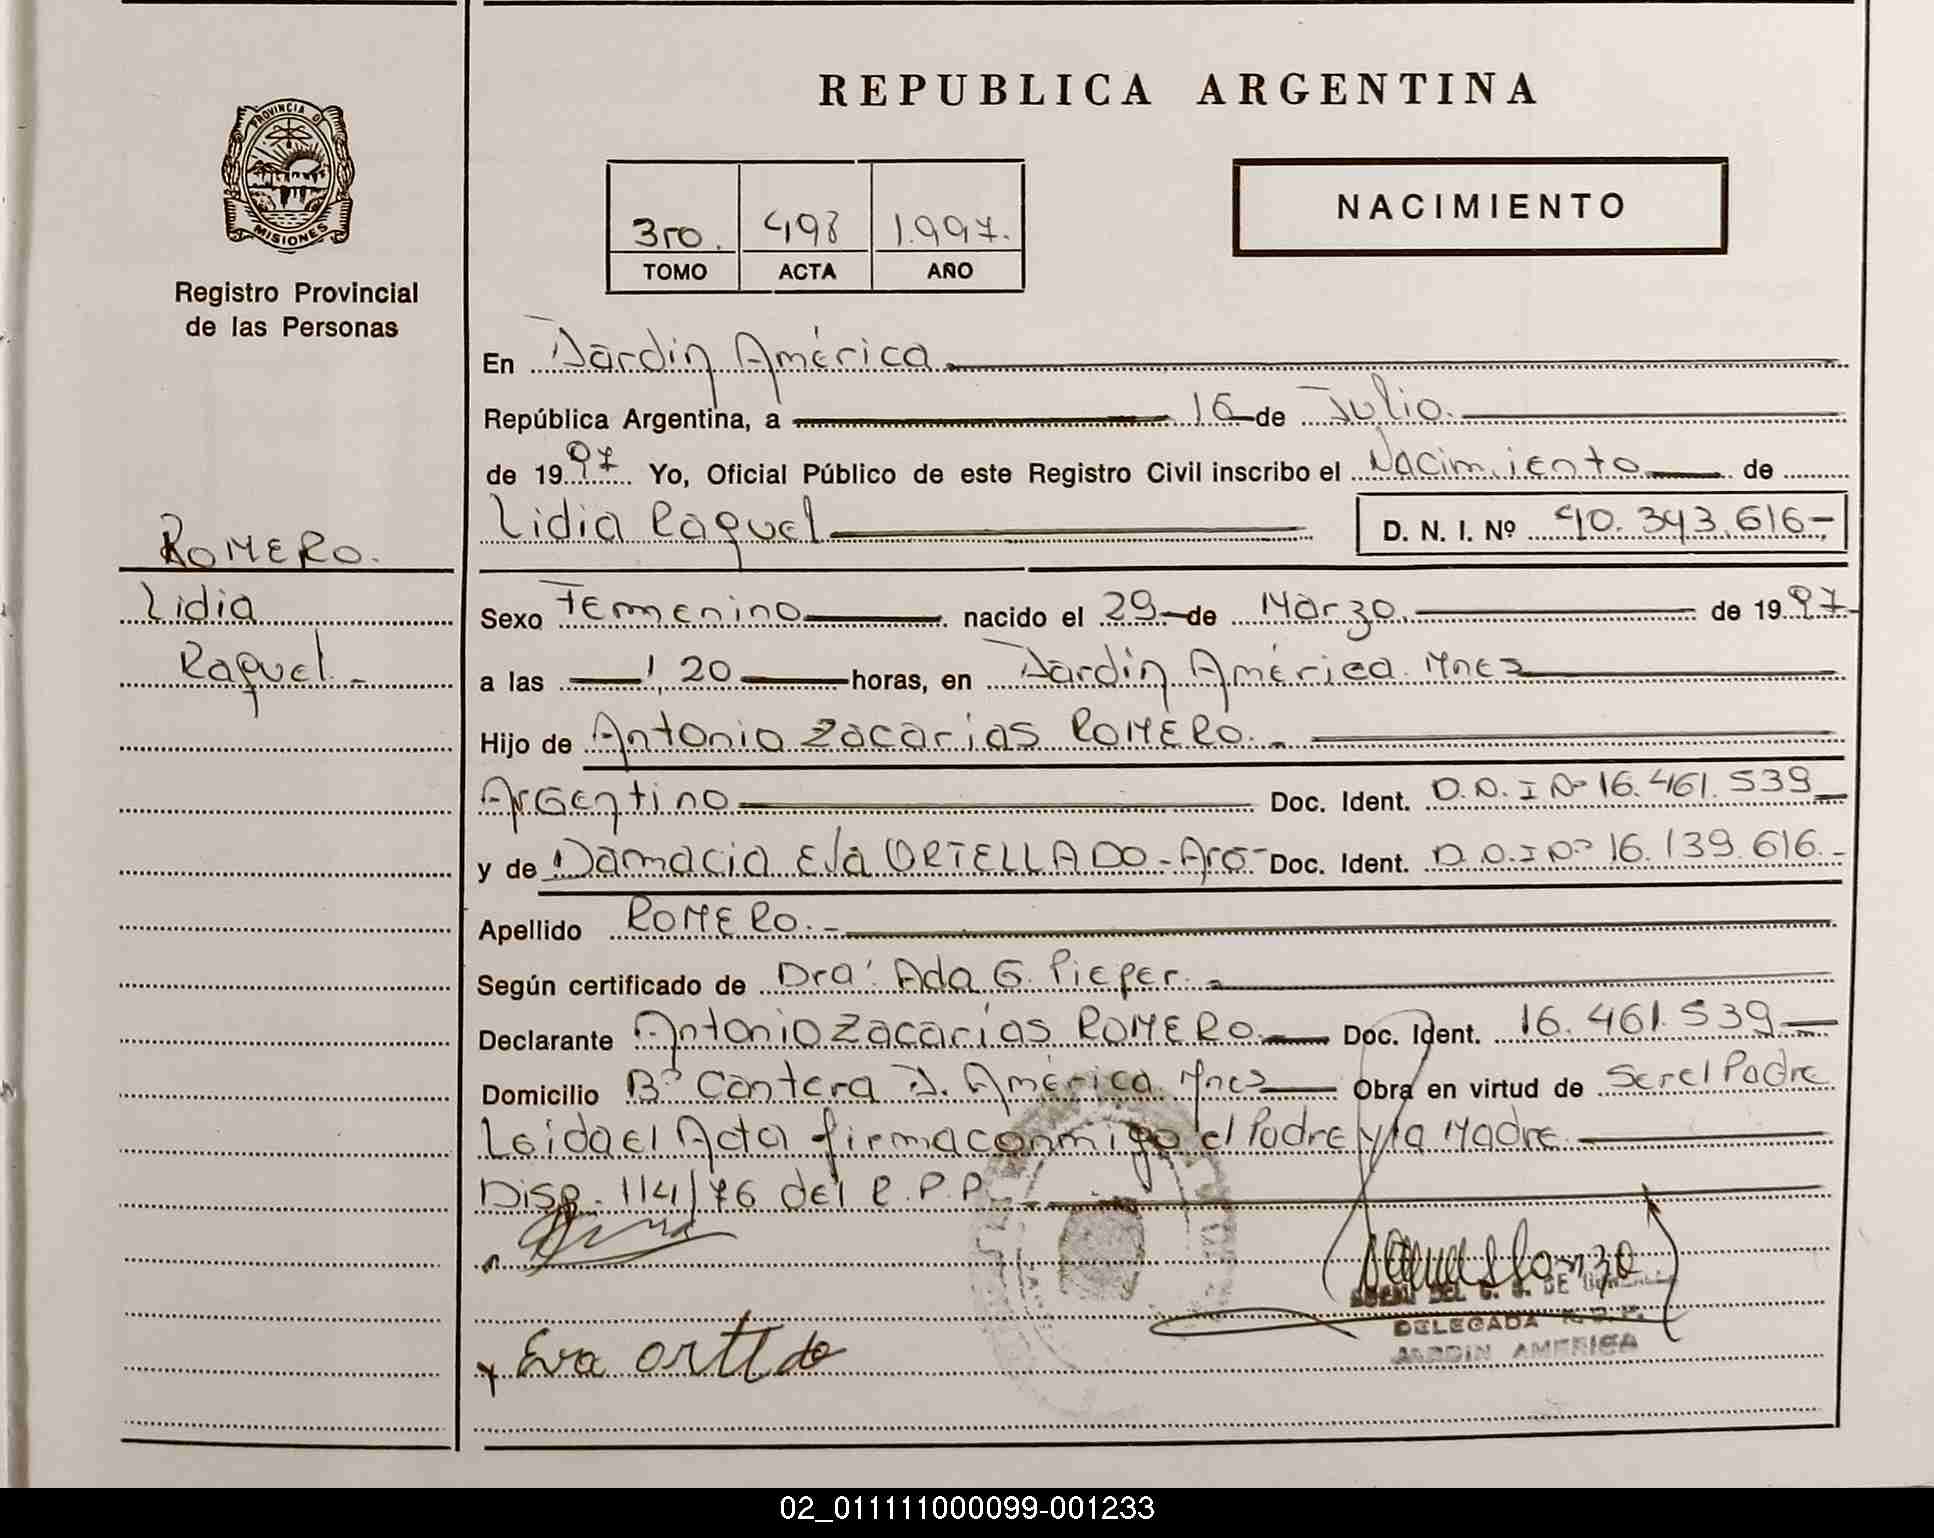 REPUBLICA ARGENTINA
PROVINCIA D
MISIONES
Registro Provincial
de las Personas
3ro. 498 1.997.
TOMO ACTA AÑO
NACIMIENTO
En Jardin América
República Argentina, a 16 de Julio.
de 1997 Yo, Oficial Público de este Registro Civil inscribo el Nacimiento de
Lidia Raquel D. N. I. Nº 40.343.616-
ROMERO.
Lidia
Raquel.-
Sexo Femenino nacido el 29 de Marzo. de 1997
a las 1,20 horas, en Jardin América. Mnes
Hijo de Antonio Zacarias ROMERO.-
Argentino Doc. Ident. D.N.I Nº 16.461.539
y de Damacia Eva ORTELLADO - Arg- Doc. Ident. D.N.I Nº 16.139.616.-
Apellido ROMERO.-
Según certificado de Dra. Ada G. Pieper.-
Declarante Antonio Zacarías ROMERO. Doc. Ident. 16.461.539
Domicilio Bº Cantera J. América Mnes Obra en virtud de Ser el Padre
Leida el Acta firma conmigo el Padre y la Madre.
Disp. 114/76 del R.P.P.-
Eva
DELEGADA R.P.P.
JARDIN AMERICA
02_011111000099-001233